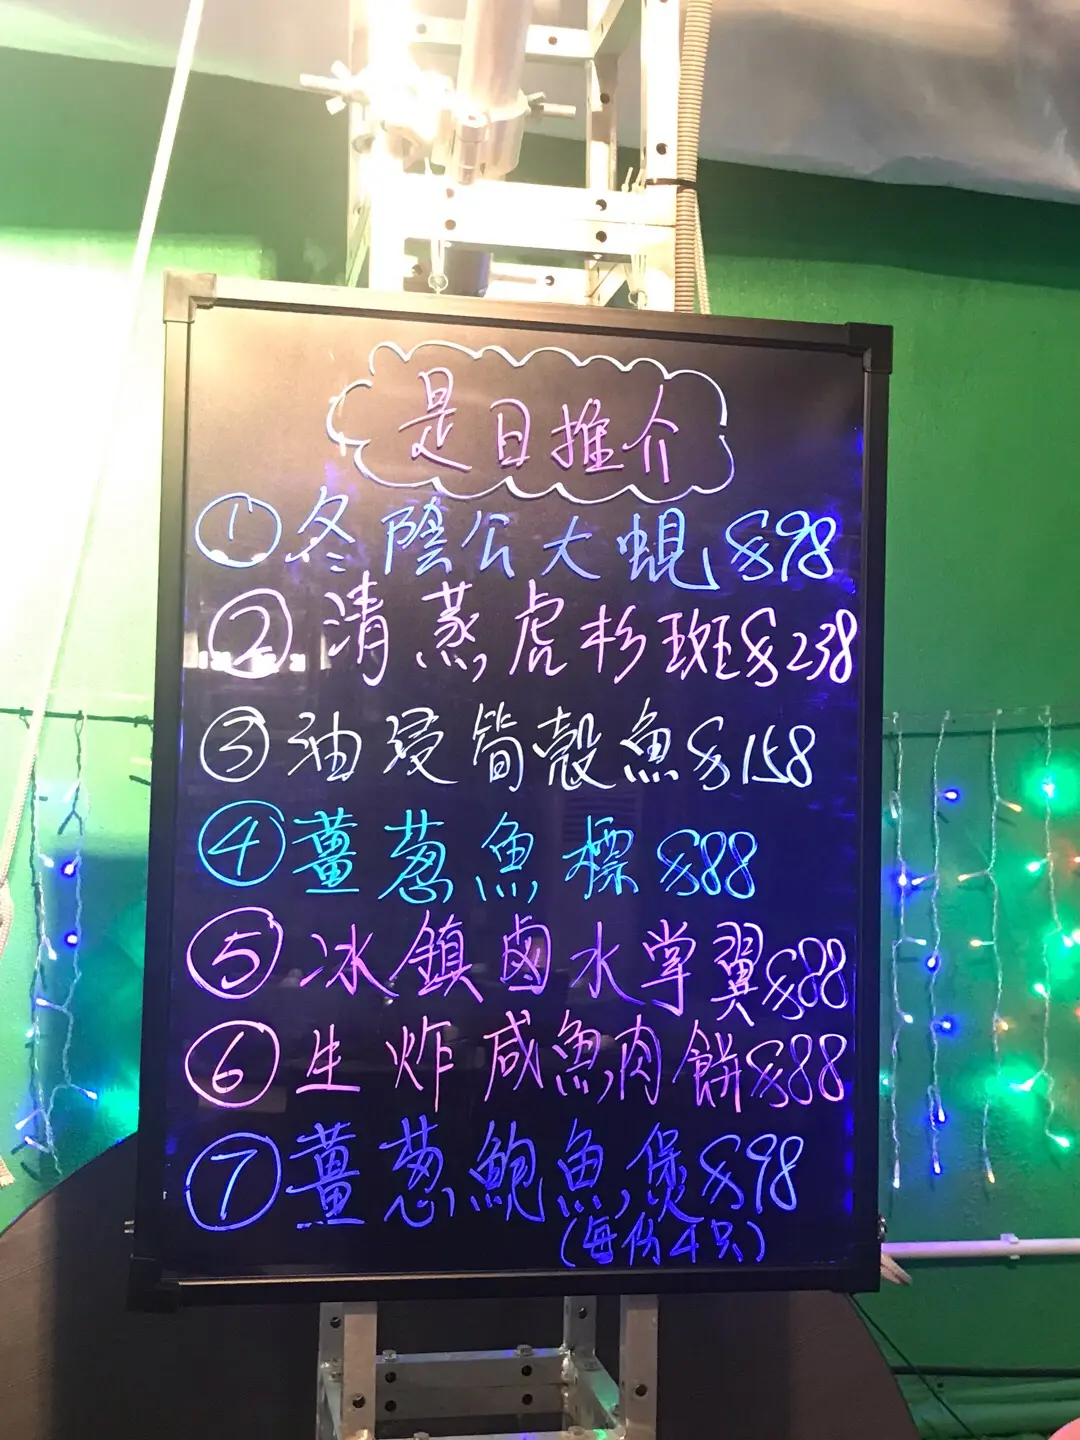 是日推介
① 冬陰公大蜆 $98
② 清蒸虎杉斑 $238
③ 油浸筍殼魚 $158
④ 薑葱魚標 $88
⑤ 冰鎮鹵水掌翼 $88
⑥ 生炸咸魚肉餅 $88
⑦ 薑葱鮑魚煲 $98
(每份4只)